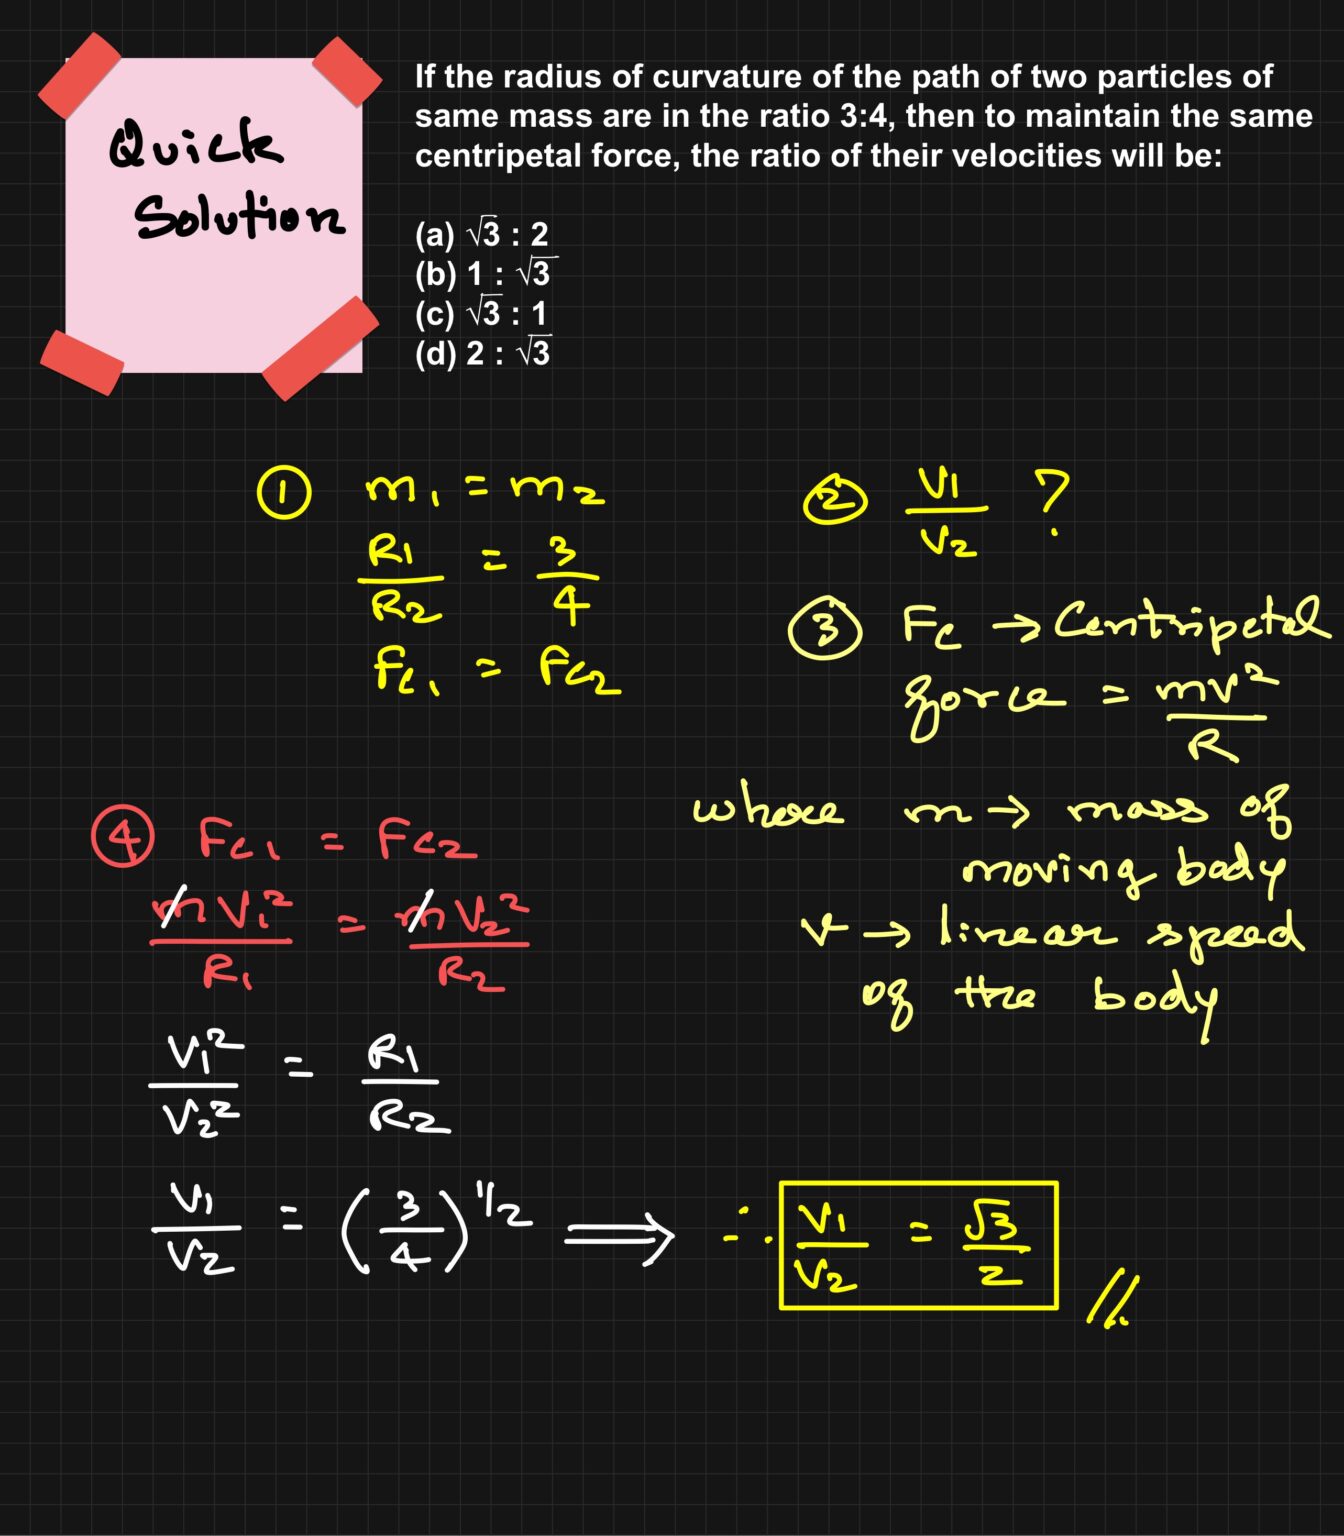 Quick
Solution
If the radius of curvature of the path of two particles of
same mass are in the ratio 3:4, then to maintain the same
centripetal force, the ratio of their velocities will be:
(a) √3 : 2
(b) 1 : √3
(c) √3 : 1
(d) 2 : √3
① m₁ = m₂
R₁/R₂ = 3/4
Fc₁ = Fc₂
② V₁/V₂ ?
③ Fc → Centripetal
force = mv²/R
where m → mass of
moving body
v → linear speed
of the body
④ Fc₁ = Fc₂
mV₁²/R₁ = mV₂²/R₂
V₁²/V₂² = R₁/R₂
V₁/V₂ = (3/4)^1/2 ⟹ ∴ V₁/V₂ = √3/2 //.